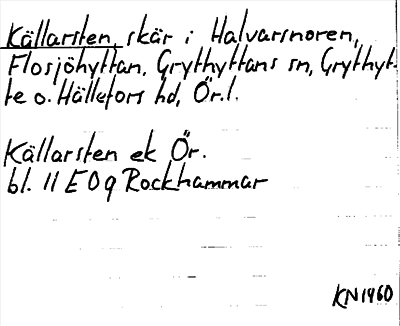 Källarsten, skär i Halvarsnoren,
Flosjöhyttan, Grythyttans sn, Grythyt-
te o. Hällefors hd, Ör.l.
Källarsten ek Ör.
bl. 11 E 0 g Rockhammar
KN1960